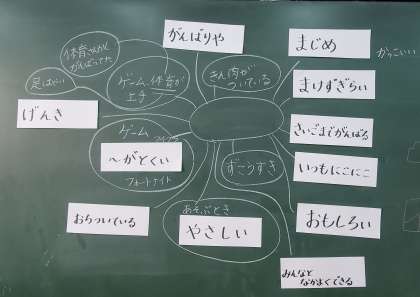 がんばりや
まじめ
かっこいい
体育さんかく
がんばってた
足はやい
ゲーム、体育が
上手
きん肉が
ついている
まけずぎらい
げんき
ゲーム
〜がとくい
フォートナイト
さいごまでがんばる
ずこうすき
いつもにこにこ
おちついている
あそぶとき
やさしい
おもしろい
みんなと
なかよくできる